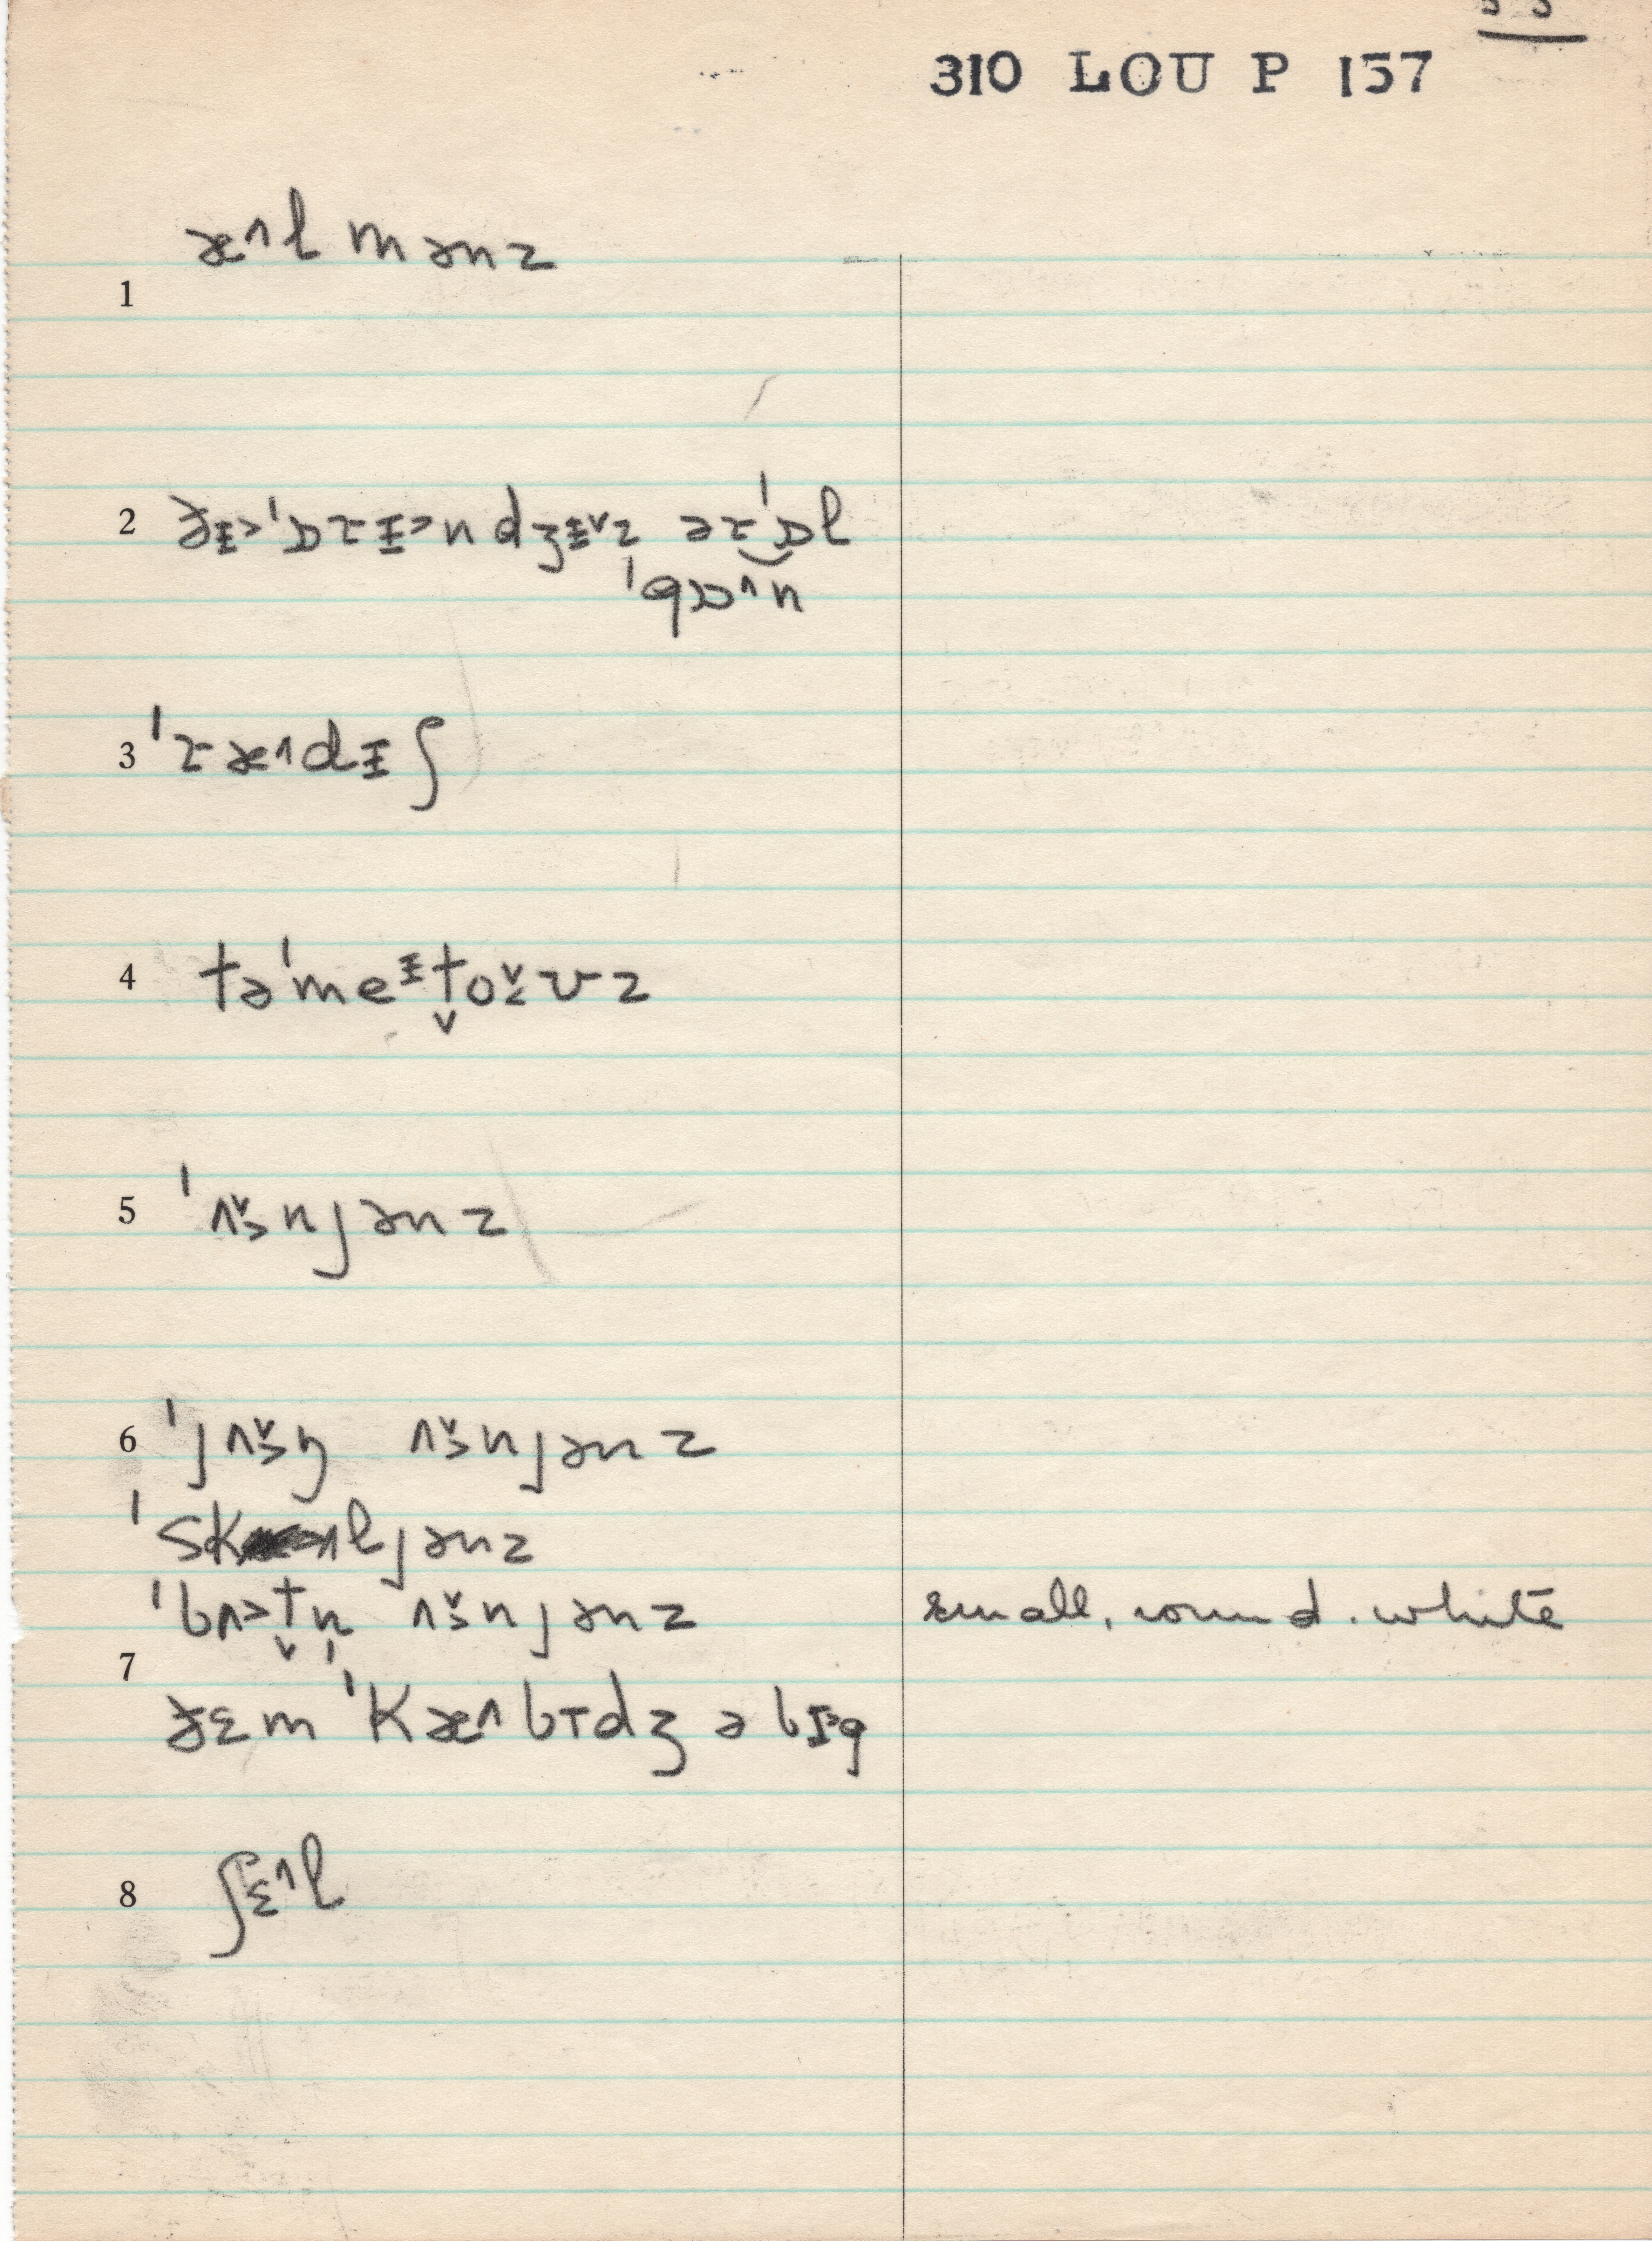 310 LOU P 157
1 æ˄l mənz
2 ðɪ̵˃ ˈɒɾɪ̵˃ndʒɪ̵˅z əɾˈɒl
ˈgɒ˄n
3 ˈɾæ˄dɪ̵ʃ
4 təˈmeɪ̵t̬o˅vz
5 ˈʌ̌˃njənz
6 ˈjʌ̌˃ŋ ʌ̌˃njənz
ˈskæ˄ljənz
ˈbʌ˃t̬n̩ ʌ̌˃njənz small, round. white
7 ðɛm ˈkæ˄bɪdʒ ə bɪ˃g
8 ʃɛ˄l